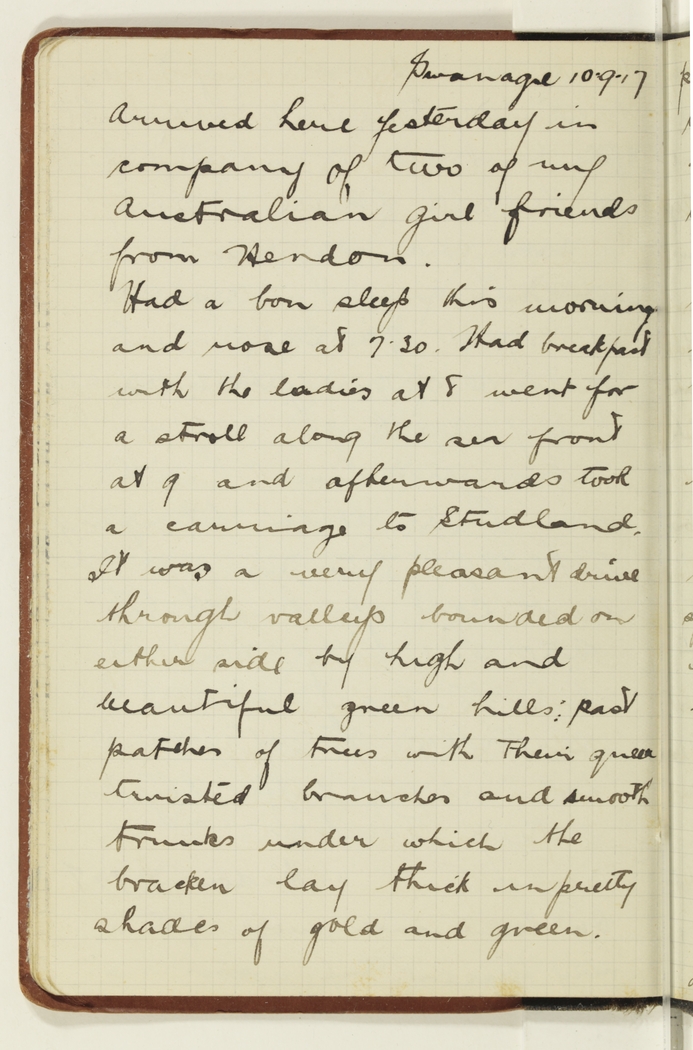 Swanage 10-9-17
Arrived here yesterday in
company of two of my
Australian girl friends
from Hendon.
Had a bon sleep this morning
and rose at 7.30. Had breakfast
with the ladies at 8 went for
a stroll along the sea front
at 9 and afterwards took
a carriage to Studland.
It was a very pleasant drive
through valleys bounded on
either side by high and
beautiful green hills; past
patches of trees with their queer
twisted branches and smooth
trunks under which the
bracken lay thick in pretty
shades of gold and green.